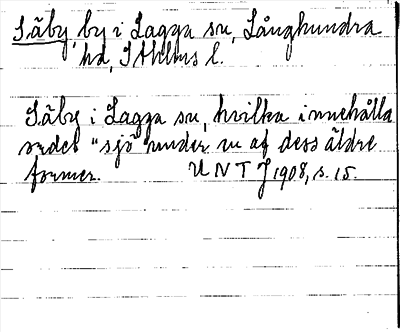 Säby, by i Lagga sn, Långhundra
hd, Sthlms l.
Säby i Lagga sn, hvilka innehålla
ordet "sjö" under en af dess äldre
former. UNTJ 1908, s. 15.